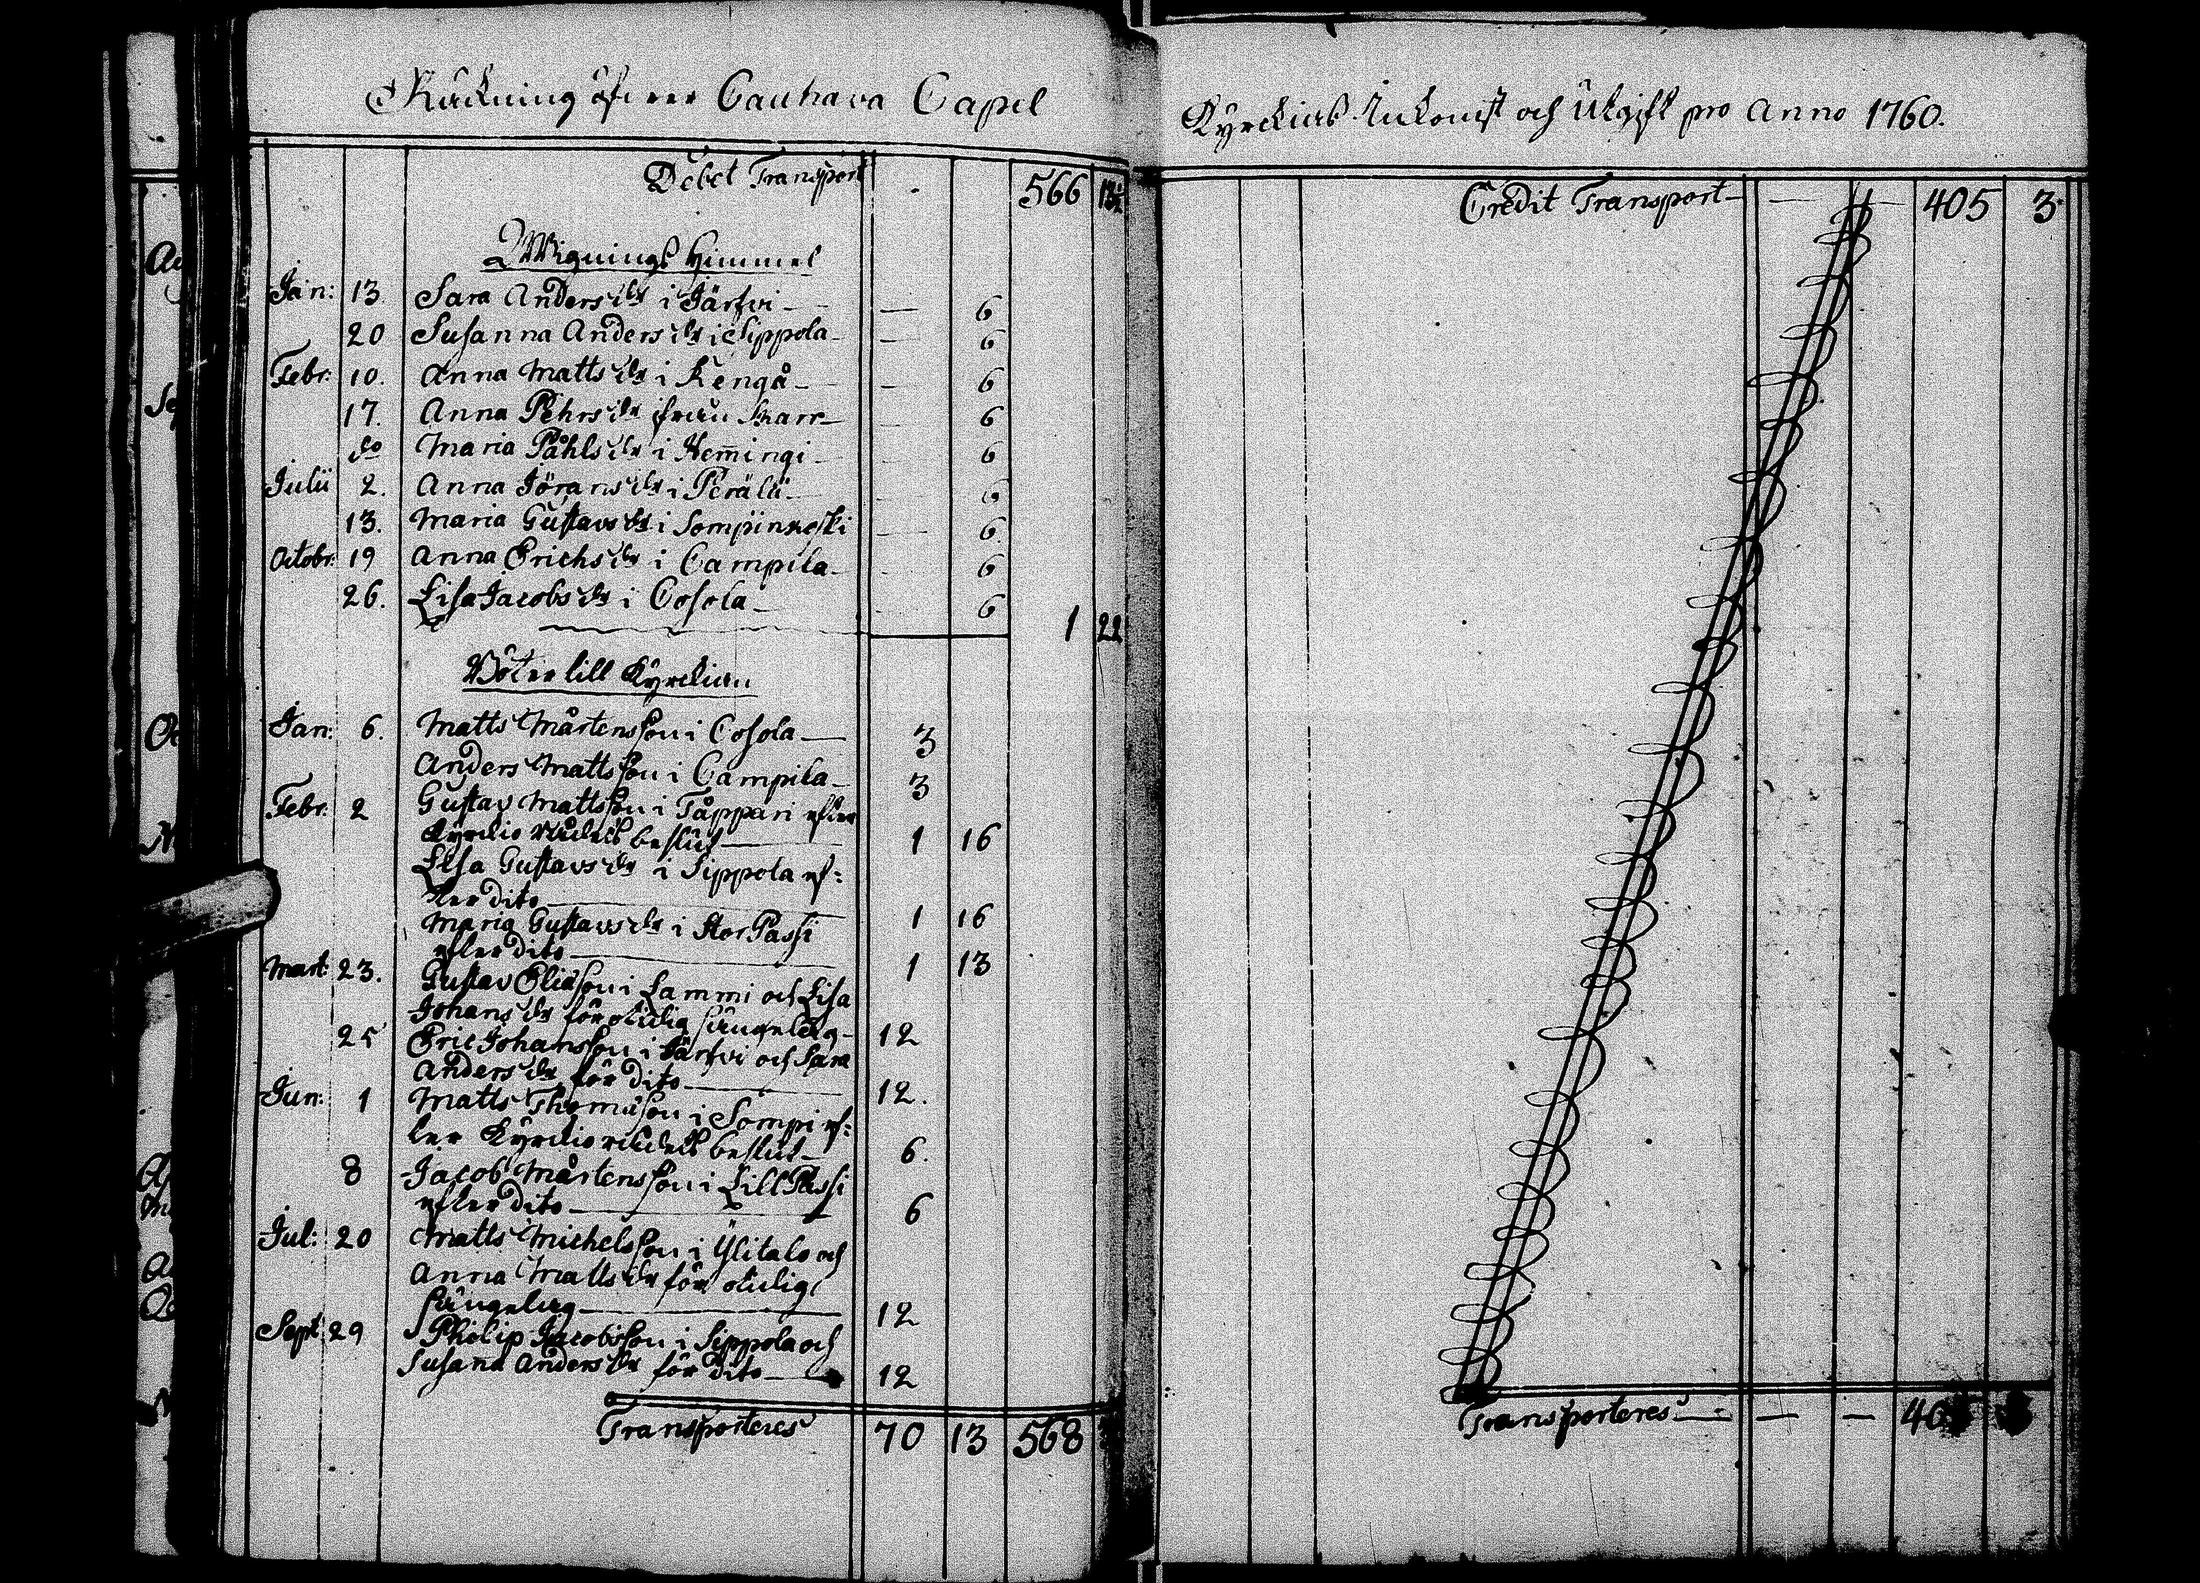 Räckning öfwer Cauhava Capel
Debet Transport 566 13½
Wignings Himmel
Jan: 13. Sara Anders dr i Järfvi — 6
20 Susanna Anders dr i Sippola — 6
Febr: 10. Anna Matts dr i Kengå — 6
17. Anna Pehrs dr ifrån — 6
do Maria Påhls dr i Hem̄ingi — 6
Julii 2. Anna Jörans dr i Perälä — 6
13. Maria Gustavs dr i Sompinkoski — 6
Octobr: 19 Anna Erichs dr i Campila — 6
26. Lisa Jacobs dr i Cosola — 6
1 22
Böter till Kyrckian
Jan: 6. Matts Mårtensson i Cosola — 3
Anders Mattsson i Campila — 3
Febr: 2 Gustav Mattsson i Tåppari efter
Kyrckio Rådets beslut — 1 16
Lisa Gustavs dr i Sippola ef:
ter dito — 1 16
Maria Gustavs dr i Stor Passi
efter dito — 1 13
Mart: 23. Gustav Eliasson i Lammi och Lisa
Johans dr för otidig sängelag — 12
25 Eric Johansson i Järfvi och Sara
Anders dr för dito — 12.
Jun: 1 Matts Thomasson i Sompi ef:
ter Kyrckio rådets beslut — 6.
8 Jacob Mårtensson i Lill Passi
efter dito — 6
Jul: 20 Matts Michelsson i Ylitalo och
Anna Matts dr för otidig
sängelag — 12
Sept 29 Philip Jacobsson i Sippola och
Susana Anders dr för dito — 12
Transporteres 70 13 568
Kyrckias Inkomst och Utgift pro Anno 1760.
Credit Transport — 405 3
Transporteres — — —